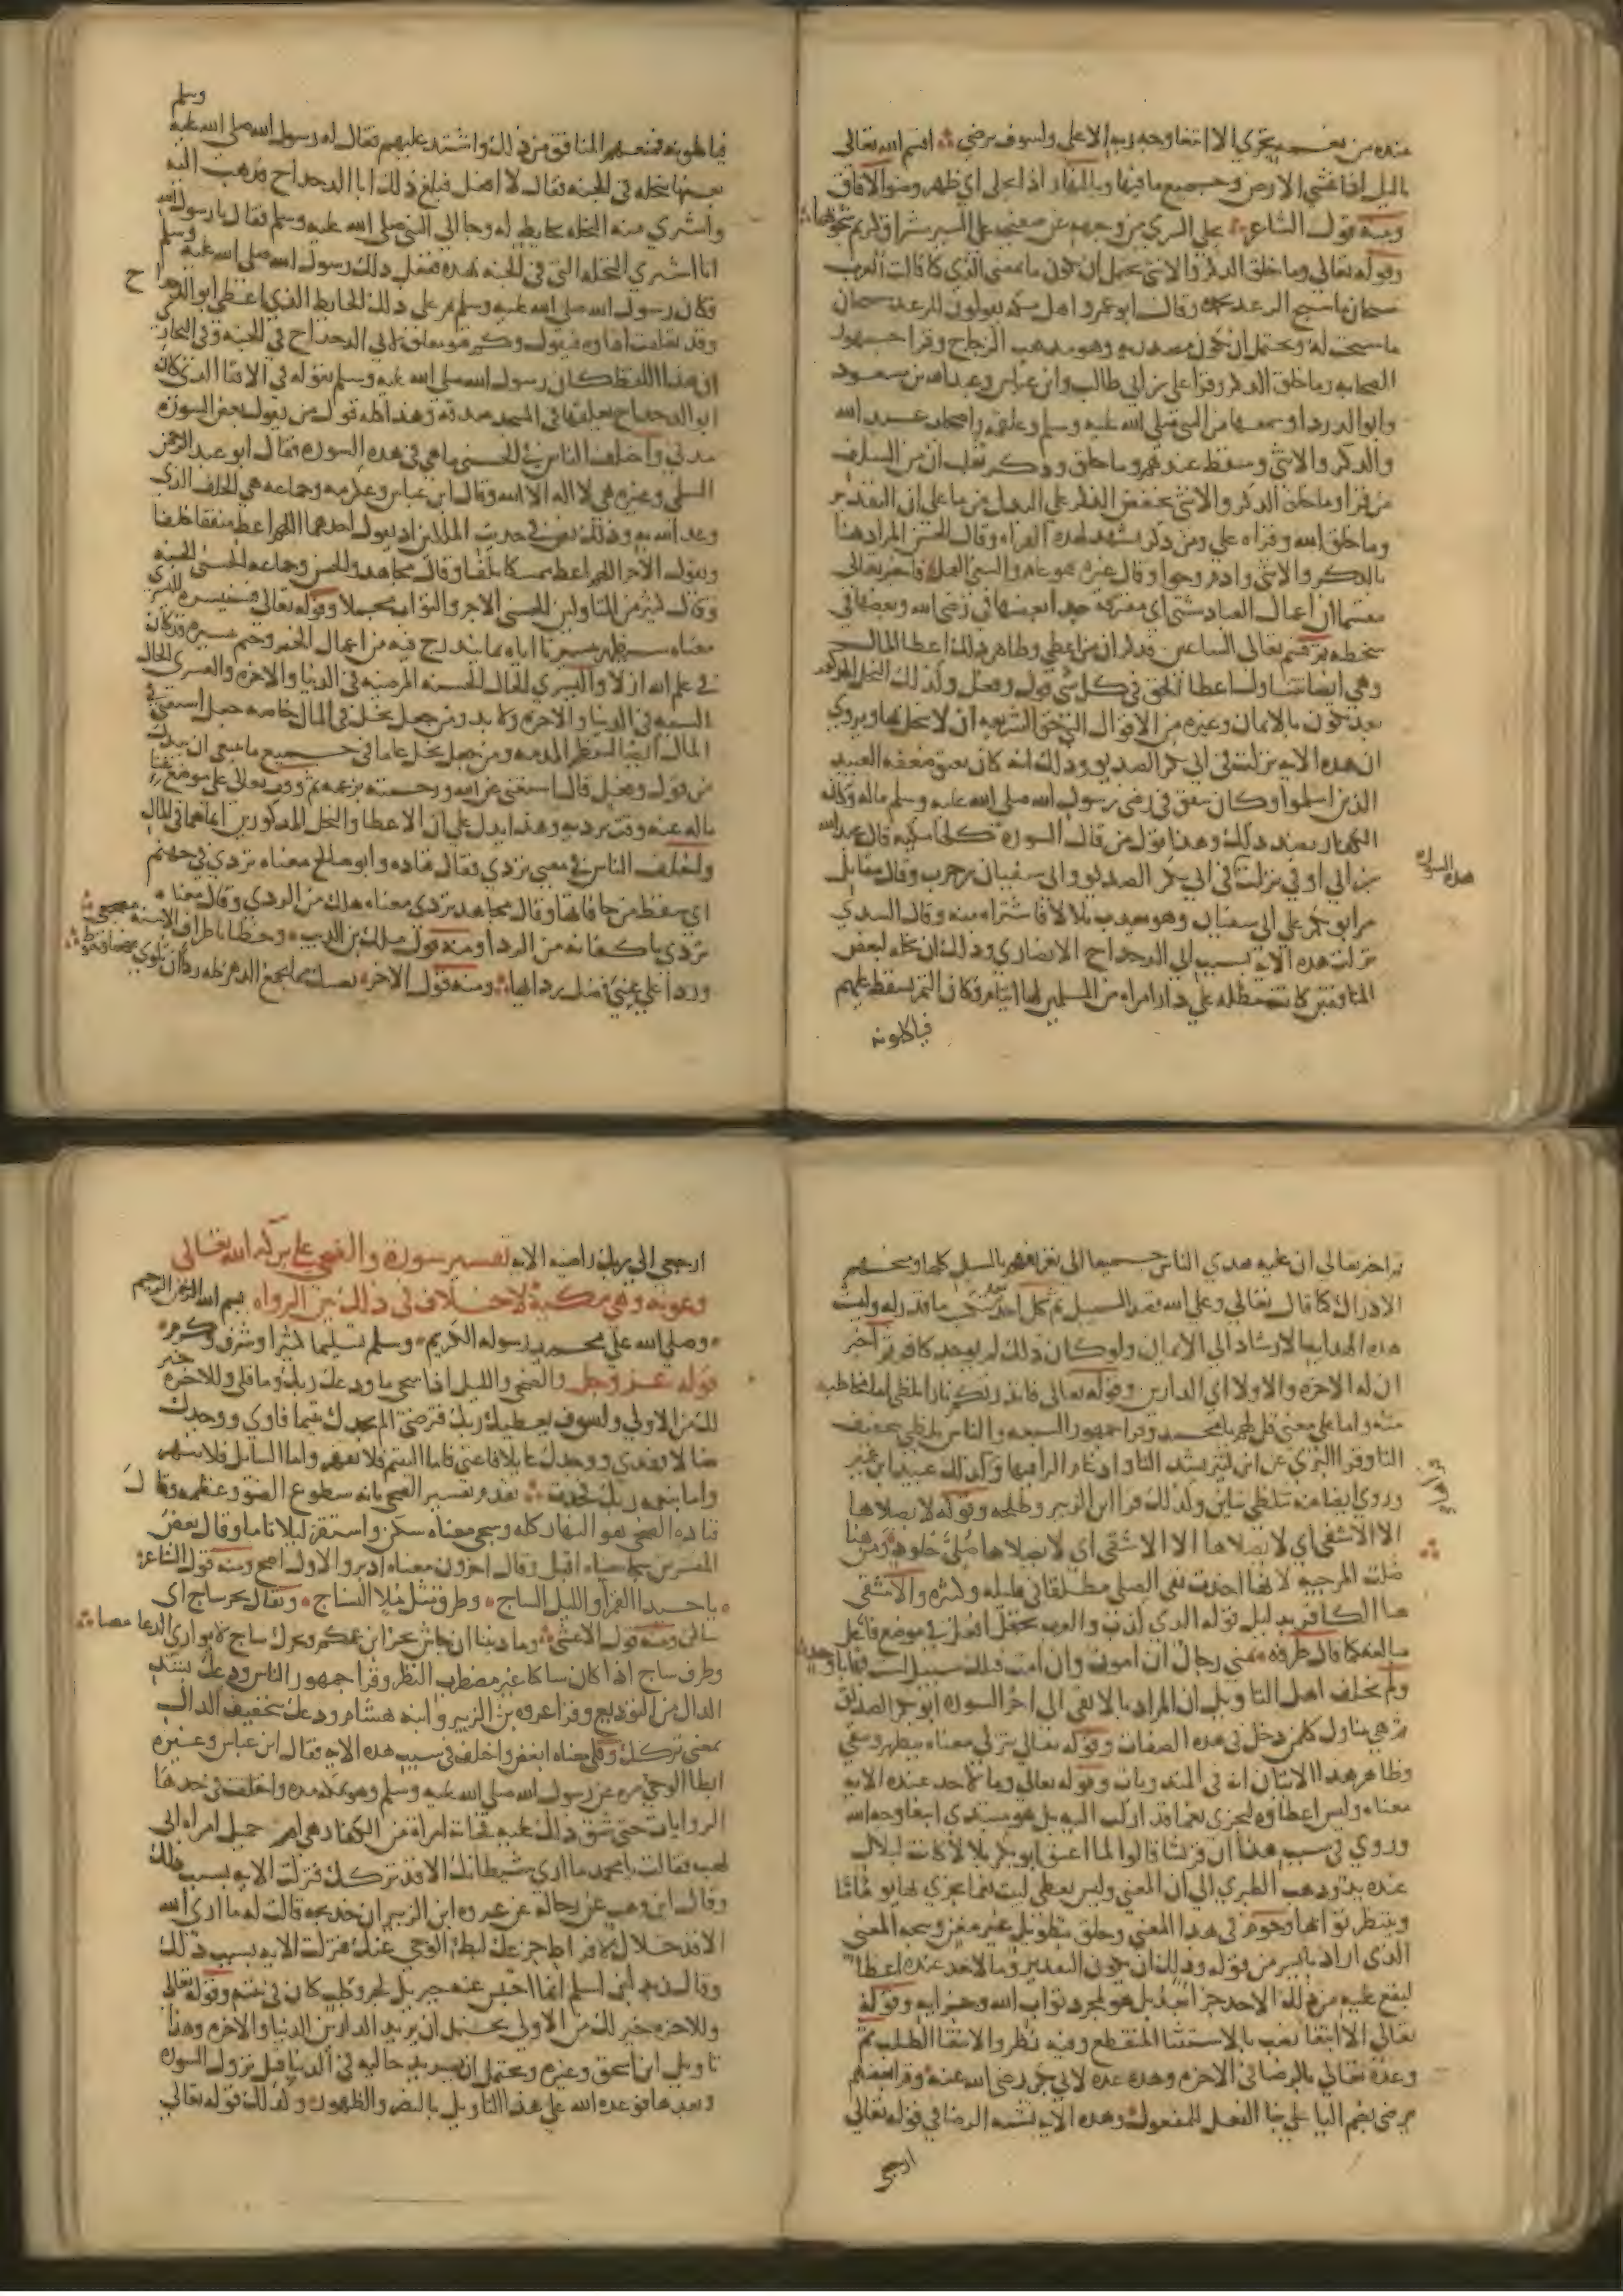 عنده من نعمه تجزي الا ابتغا وجه ربه الاعلي ولسوف يرضي اقسم الله تعالي
بالليل اذا غشي الارض وجميع ما فيها وبالنهار اذا تجلي اي ظهر وضوا الافاق
ومنه قول الشاعر تجلي السري من وجهه عن صفيحه علي السير مشراق كريم شجوبها
وقوله تعالي وما خلق الذكر والانثي يحتمل ان تكون ما بمعني الذي كما قالت العرب
سبحان ما سبح الرعد بحمده وقال ابو عمرو واهل مكه يقولون للرعد سبحان
ما سبحت له ويحتمل ان تكون مصدريه وهو مذهب الزجاج وقرا جمهور
الصحابه وما خلق الذكر وقرا علي بن ابي طالب وابن عباس وعبد الله بن مسعود
وابو الدرداء وسمعها من النبي صلي الله عليه وسلم وعلقمه واصحاب عبد الله
والذكر والانثي وسقط عندهم وما خلق وذكر ثعلب ان من السلف
من قرا وما خلق الذكر والانثي بخفض الذكر علي البدل من ما علي ان التقدير
وما خلق الله وقراه علي ومن ذكر تشهد لهذه القراه وقال الحسن المراد هنا
بالذكر والانثي وادم وحوا وقال غيره هو عام والسعي العمل فاخبر تعالي
مقسما ان اعمال العباد شتي اي مفترقه جدا بعضها في رضي الله وبعضها في
سخطه ثم قسم تعالي الساعين فذكر ان من اعطي وظاهر ذلك اعطا المال
وهي ايضا تتناول اعطا الحق في كل شي قول وفعل وكذلك البخل المذكور
بعد تكون بالايمان وغيره من الاقوال التي حق الشريعه ان لا يبخل بها ويروي
ان هذه الايه نزلت في ابي بكر الصديق وذلك انه كان يعتق ضعفه العبيد
الذين اسلموا وكان ينفق في رضي رسول الله صلي الله عليه وسلم ماله وكان
الكفار بضد ذلك وهذا قول من قال السوره كلها مكيه قال عبد الله
بن ابي اوفي نزلت في ابي بكر الصديق وابي سفيان بن حرب وقال مقاتل
هذه السوره
مر ابو بكر علي ابي سفيان وهو يعذب بلالا فاشتراه منه وقال السدي
نزلت هذه الايه بسبب ابي الدحداح الانصاري وذلك ان نخله لبعض
المنافقين كانت مطله علي دار امراه من المسلمين لها ايتام فكان التمر يسقط عليهم
فياكلونه
وسلم
فياكلونه فمنعهم المنافق من ذلك واشتد عليهم فقال له رسول الله صلي الله عليه
بعنيها بنخله في الجنه فقال لا افعل فبلغ ذلك ابا الدحداح فذهب اليه
واشتري منه النخله بحايط له وجا الي النبي صلي الله عليه وسلم فقال يا رسول الله
انا اشتري النخله التي في الجنه بهذه ففعل ذلك رسول الله صلي الله عليه وسلم
فكان رسول الله صلي الله عليه وسلم يمر علي ذلك الحايط الذي اعطي ابو الدحداح
وقد تعلقت اقناوه فيقول وكم قنو معلق لابي الدحداح في الجنه وفي البخاري
ان هذا اللفظ كان رسول الله صلي الله عليه وسلم يقوله في الاقنا الذي كان
ابو الدحداح يعلقها في المسجد صدقه وهذا كله قول من يقول بعض السوره
مدني واختلف الناس في الحسني ما هي في هذه السوره فقال ابو عبد الرحمن
السلمي وغيره هي لا اله الا الله وقال ابن عباس وعكرمه وجماعه هي الخلف الذي
وعد الله به وذلك نص في حديث الملكين اذ يقول احدهما اللهم اعط منفقا خلفا
ويقول الاخر اللهم اعط ممسكا تلفا وقال مجاهد والحسن وجماعه الحسني الجنه
وقال كثير من المتاولين الحسني الاجر والثواب مجملا وقوله تعالي فسنيسره لليسري
معناه سيظهر تيسيرنا اياه بما يتدرج فيه من اعمال الخير وحتم تيسيره قد كان
في علم الله ازلا واليسري الحال الحسنه المرضيه في الدنيا والاخره والعسري الحال
السييه في الدنيا والاخره ولا بد ومن جعل بخل في المال خاصه جعل استغني في
المال ايضا لتعظم المذمه ومن جعل بخل عاما في جميع ما ينبغي ان يبذل
من قول وفعل قال استغني عن الله ورحمته بزعمه ثم وقف تعالي علي موضع غنا
ماله عنه وقت ترديه وهذا يدل علي ان الاعطا والبخل المذكورين انما هما في المال
واختلف الناس في معني تردي فقال قتاده وابو صالح معناه تردي في جهنم
اي سقط من حافاتها وقال مجاهد تردي معناه هلك من الردي وقال معناه
تردي باكفانه من الردا ومنه قول مالك بن الريب وخطا باطراف الاسنه مضجعي
وردا علي عيني فضل ردائيا ومنه قول الاخر نصيبك مما تجمع الدهر كله رداان تلوي فيهما وحنوط
ثم اخبر تعالي ان عليه هدي الناس جميعا اي تعريفهم بالسبل كلها ومنحهم
الادراك كما قال تعالي وعلي الله قصد السبيل ثم كل احد يتكسب ما قدر له وليست
هذه الهدايه الارشاد الي الايمان ولو كان ذلك لم يوجد كافر ثم اخبر
ان له الاخره والاولا اي الدارين وقوله تعالي فانذرتكم نارا تلظي اما مخاطبه
منه واما علي معني قل لهم يا محمد وقرا جمهور السبعه والناس تلظي بتخفيف
التا وقرا البزي عن ابن كثير بشد التا وادغام الرا فيها وكذلك عبيد ابن عمير
وروي ايضا عنه تتلظي بتاين وكذلك قرا ابن الزبير وطلحه وقوله لا يصلاها
الا الاشقي اي لا يصلاها الا الاشقي اي لا يصلاها صلي خلود ومن هنا
ضلت المرجيه لانها اخذت نفي الصلي مطلقا في قليله وكثيره والاشقي
هنا الكافر بدليل قوله الذي كذب والعرب تجعل افعل في موضع فاعل
مبالغه كما قال طرفه تمني رجال ان اموت وان امت فتلك سبيل لست فيها باوحد
ولم يختلف اهل التاويل ان المراد بالاتقي الي اخر السوره ابو بكر الصديق
ثم هي يتناول كل من دخل في هذه الصفات وقوله تعالي يتزكي معناه يتطهر ويتنمي
وظاهر هذا الايتان انه في المندوبات وقوله تعالي وما لاحد عنده الايه
معناه وليس اعطاوه ليجزي نعما قد ازلت اليه بل هو مبتدي ابتغا وجه الله
وروي في سبب هذا ان قريشا قالوا لما اعتق ابو بكر بلالا كانت لبلال
عنده يد وذهب الطبري الي ان المعني وليس يعطي ليبث نعما يجزي بها يوما ما
وينتظر ثوابها وحوم في هذا المعني وحلق بتطويل غير مغن ويتجه المعني
الذي اراد بايسر من قوله وذلك ان يكون التقدير وما لاحد عنده اعطا
ليقع عليه من ذلك الاحد جزا بعد بل هو لمجرد ثواب الله وجزايه وقوله
تعالي الا ابتغا نصب بالاستثنا المنقطع وفيه نظر والابتغا الطلب ثم
وعده تعالي بالرضا في الاخره وهذه عده لابي بكر رضي الله عنه وقرا بعضهم
يرضي بضم اليا علي بنا الفعل للمفعول وهذه الايه تشبه الرضا في قوله تعالي
ارجعي
ارجعي الي ربك راضيه الايه تفسير سورة والضحي علي بركة الله تعالي
وعونه وهي مكيه لا خلاف في ذلك بين الرواه بسم الله الرحمن الرحيم
وصلي الله علي محمد رسوله الكريم وسلم تسليما كثيرا وشرف وكرم
قوله عز وجل والضحي والليل اذا سجي ما ودعك ربك وما قلي وللاخره خير
لك من الاولي ولسوف يعطيك ربك فترضي الم يجدك يتيما فاوي ووجدك
ضالا فهدي ووجدك عايلا فاغني فاما اليتيم فلا تقهر واما السايل فلا تنهر
واما بنعمه ربك فحدث تقدم تفسير الضحي بانه سطوع الضو وعظمه وقال
قتاده الضحي هو النهار كله وسجي معناه سكن واستقر ليلا تاما وقال بعض
المفسرين سجي معناه اقبل وقال اخرون معناه ادبر والاول اصح ومنه قول الشاعر
يا حبذا القمرا والليل الساج وطرق مثل ملا النساج ويقال بحر ساج اي
ساكن ومنه قول الاعشي وما ذنبنا ان جاش بحر ابن عمكم وبحرك ساج لا يواري الدعامصا
وطرف ساج اذا كان ساكنا غير مضطرب النظر وقرا جمهور الناس ودعك بشد
الدال من التوديع وقرا عروه بن الزبير وابنه هشام ودعك بتخفيف الدال
بمعني تركك وقلي معناه ابغض واختلف في سبب هذه الايه فقال ابن عباس وغيره
ابطا الوحي مره عن رسول الله صلي الله عليه وسلم وهو بمكه مده واختلفت في حدها
الروايات حتي شق ذلك عليه فجاته امراه من الكفار هي ام جميل امراه ابي
لهب فقالت يا محمد ما اري شيطانك الا قد تركك فنزلت الايه بسبب ذلك
وقال ابن وهب عن رجاله عن عروه ابن الزبير ان خديجه قالت له ما اري الله
الا قد خلاك لافراط جزعك لبطء الوحي عنك فنزلت الايه بسبب ذلك
وقال زيد ابن اسلم انما احتبس عنه جبريل لجرو كلب كان في بيته وقوله تعالي
وللاخره خير لك من الاولي يحتمل ان يريد الدارين الدنيا والاخره وهذا
تاويل ابن اسحق وغيره ويحتمل ان يريد حاليه في الدنيا قبل نزول السوره
وبعدها فوعده الله علي هذا التاويل بالنصر والظهور وكذلك قوله تعالي